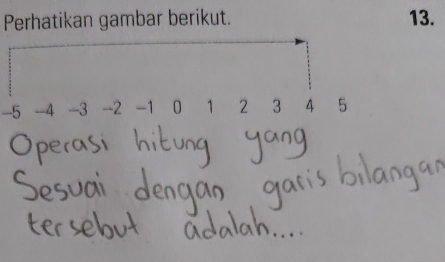 Perhatikan gambar berikut.
13.
-5 -4 -3 -2 -1 0 1 2 3 4 5
Operasi hitung yang
Sesuai dengan garis bilangan
tersebut adalah....